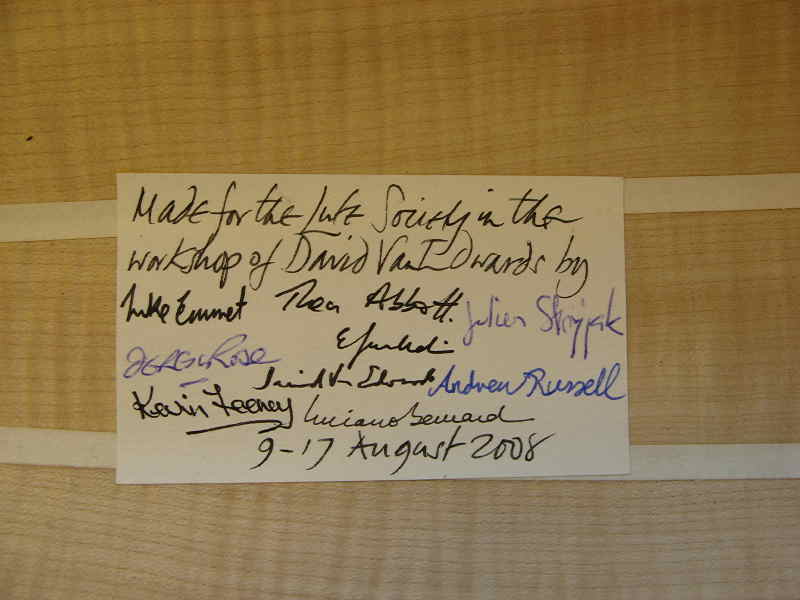 Made for the Lute Society in the
workshop of David Van Edwards by
Luke Emmet Thea Abbott. Julien
David Van Edwards Andrew Russell
Kevin Feeney Luciano
9-17 August 2008